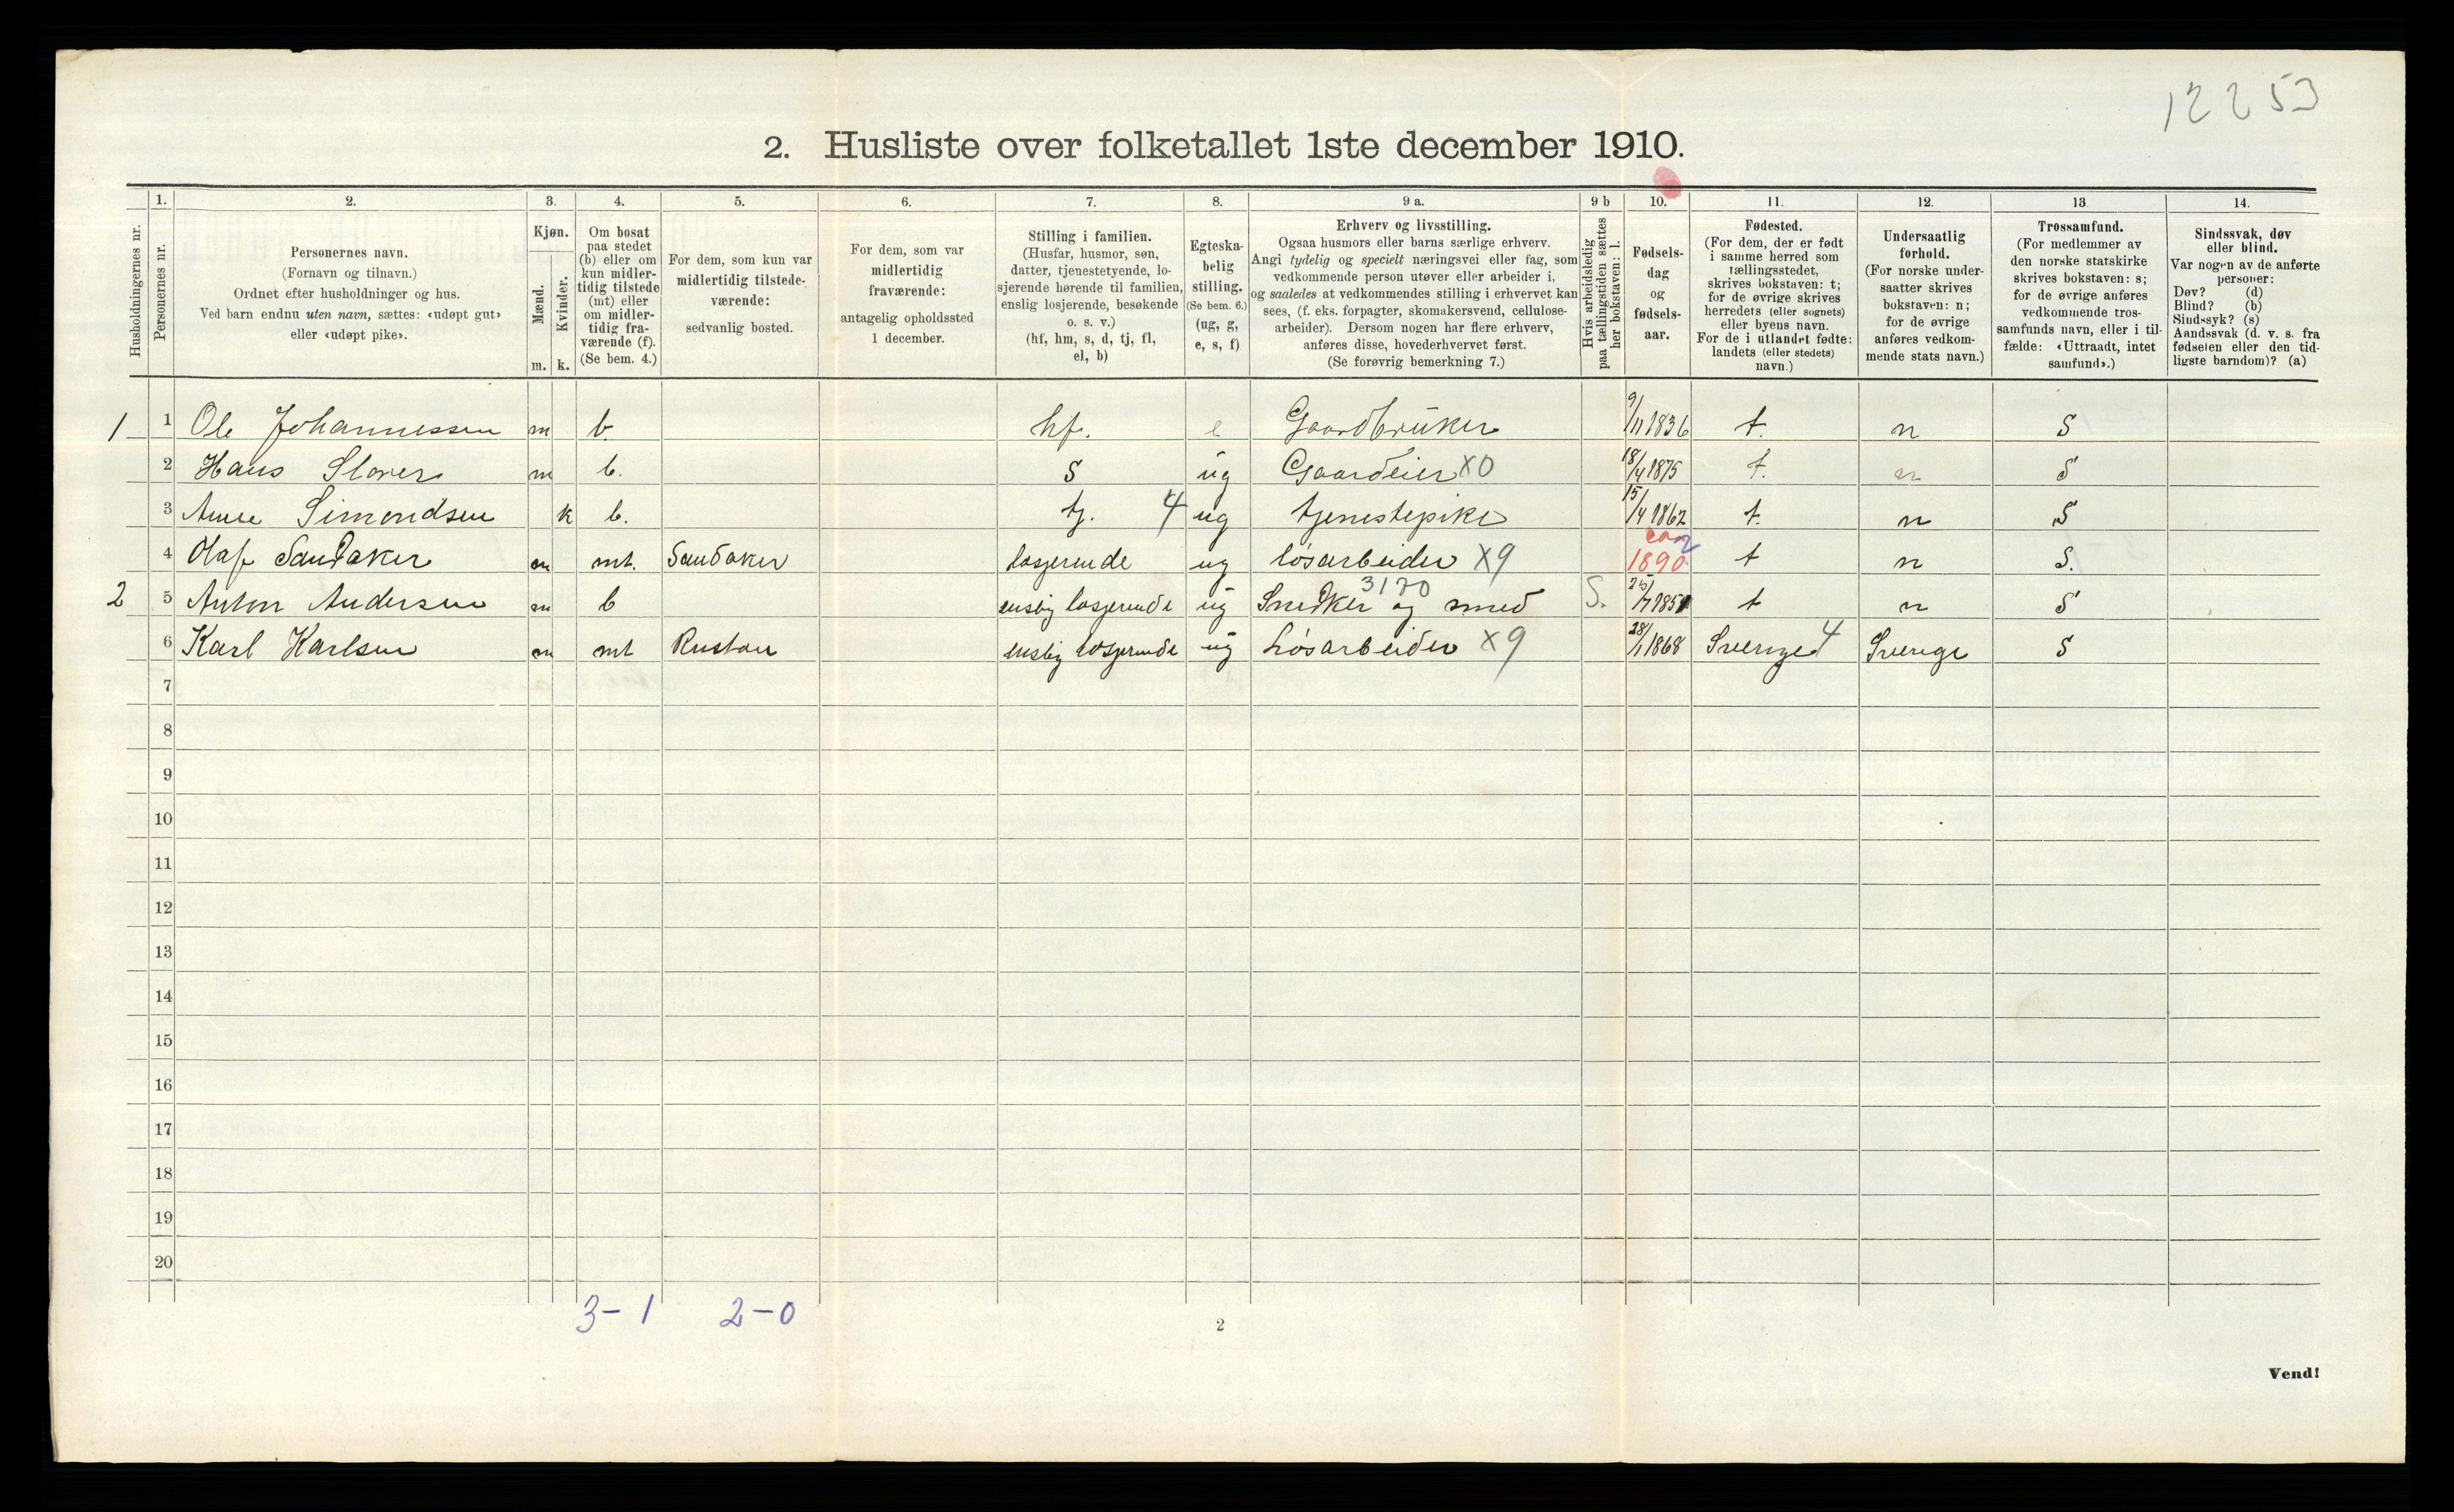 12253
2. Husliste over folketallet 1ste december 1910.
Husholdningernes nr.
1.
Personernes nr.
2.
Personernes navn.
(Fornavn og tilnavn.)
Ordnet efter husholdninger og hus.
Ved barn endnu uten navn, sættes: «udøpt gut»
eller «udøpt pike».
3.
Kjøn.
Mænd.
Kvinder.
m. k.
4.
Om bosat
paa stedet
(b) eller om
kun midler-
tidig tilstede
(mt) eller
om midler-
tidig fra-
værende (f).
(Se bem. 4.)
5.
For dem, som kun var
midlertidig tilstede-
værende:
sedvanlig bosted.
6.
For dem, som var
midlertidig
fraværende:
antagelig opholdssted
1 december.
7.
Stilling i familien.
(Husfar, husmor, søn,
datter, tjenestetyende, lo-
sjerende hørende til familien,
enslig losjerende, besøkende
o. s. v.)
(hf, hm, s, d, tj, fl,
el, b)
8.
Egteska-
belig
stilling.
(Se bem. 6.)
(ug, g,
e, s, f)
9 a.
Erhverv og livsstilling.
Ogsaa husmors eller barns særlige erhverv.
Angi tydelig og specielt næringsvei eller fag, som
vedkommende person utøver eller arbeider i,
og saaledes at vedkommendes stilling i erhvervet kan
sees, (f. eks. forpagter, skomakersvend, cellulose-
arbeider). Dersom nogen har flere erhverv,
anføres disse, hovederhvervet først.
(Se forøvrig bemerkning 7.)
9 b
Hvis arbeidsledig
paa tællingstiden sættes
her bokstaven: l.
10.
Fødsels-
dag
og
fødsels-
aar.
11.
Fødested.
(For dem, der er født
i samme herred som
tællingsstedet,
skrives bokstaven: t;
for de øvrige skrives
herredets (eller sognets)
eller byens navn.
For de i utlandet fødte:
landets (eller stedets)
navn.)
12.
Undersaatlig
forhold.
(For norske under-
saatter skrives
bokstaven: n;
for de øvrige
anføres vedkom-
mende stats navn.)
13.
Trossamfund.
(For medlemmer av
den norske statskirke
skrives bokstaven: s;
for de øvrige anføres
vedkommende tros-
samfunds navn, eller i til-
fælde: «Uttraadt, intet
samfund».)
14.
Sindssvak, døv
eller blind.
Var nogen av de anførte
personer:
Døv? (d)
Blind? (b)
Sindssyk? (s)
Aandssvak (d. v. s. fra
fødselen eller den tid-
ligste barndom)? (a)
1 1 Ole Johannessen m b. hf. e Gaardbruker 9/11 1836 t. n S
2 Hans m b. S ug Gaardeier X0 18/4 1875 t. n S
3 Anne Simondsen k b. tj. 4 ug tjenestepike 15/4 1862 t. n S
4 Olaf Sandaker m mt. Sandaker losjerende ug løsarbeider X9 1890 t n S.
2 5 Anton Andersen m b enslig losjerende ug Snedker og smed 3170 S. t n S
6 Karl Karlsen m mt Rustan enslig losjerende ug Løsarbeider X9 28/1 1868 Sverige 4 Sverige S
7
8
9
10
11
12
13
14
15
16
17
18
19
20
3-1 2-0
2
Vend!